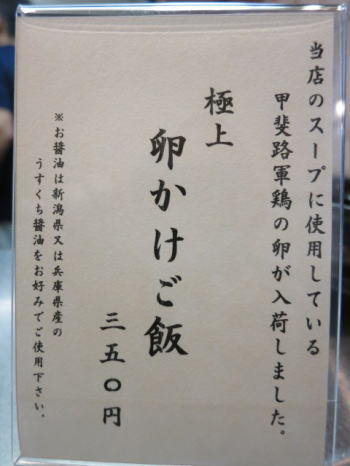 当店のスープに使用している
甲斐路軍鶏の卵が入荷しました。
極上
卵かけご飯
三五〇円
※お醤油は新潟県又は兵庫県産の
うすくち醤油をお好みでご使用下さい。